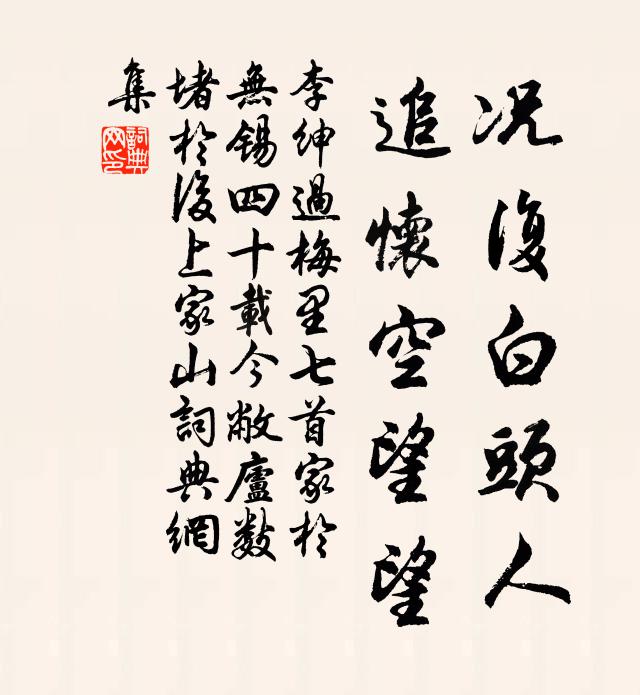 况復白頭人
追懷空望望
李紳過梅里七首家於
無錫四十載今敝廬數
堵於後上家山詞典網
集
詞典網印